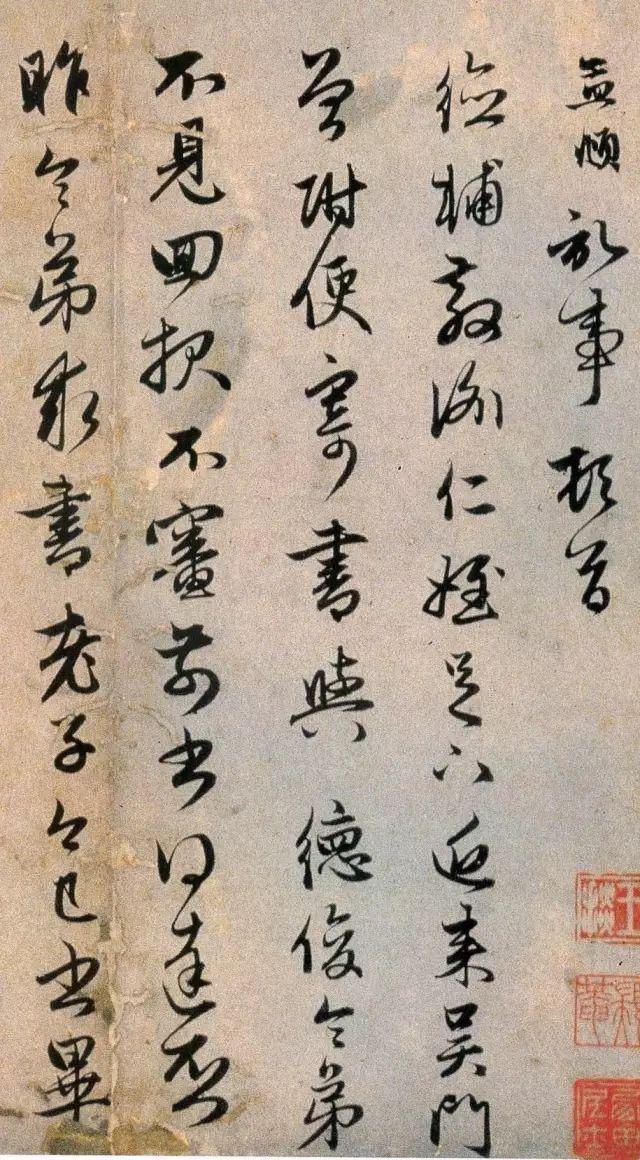 孟頫記事頓首
德輔教諭仁姪足下近來吳門
曾附便寄書與德俊令弟
不見回報不審前書得達否
昨令弟求書老子今已書畢